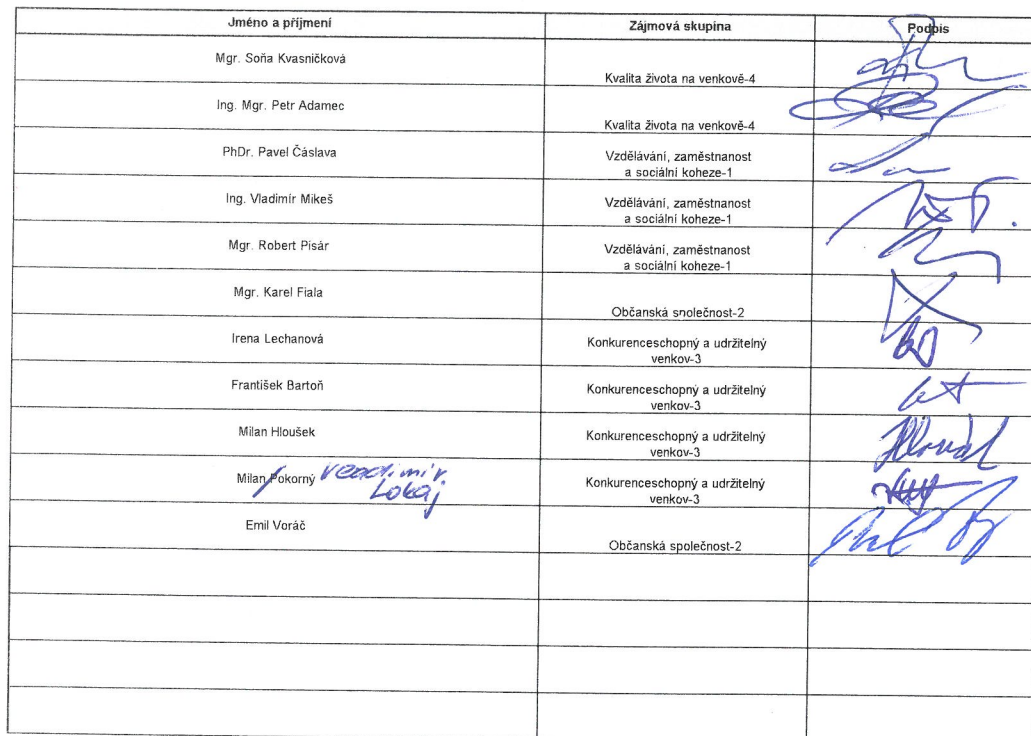 Jméno a příjmení Zájmová skupina Podpis
Mgr. Soňa Kvasničková
Kvalita života na venkově-4
Ing. Mgr. Petr Adamec
Kvalita života na venkově-4
PhDr. Pavel Čáslava
Vzdělávání, zaměstnanost
a sociální koheze-1
Ing. Vladimír Mikeš
Vzdělávání, zaměstnanost
a sociální koheze-1
Mgr. Robert Pisár
Vzdělávání, zaměstnanost
a sociální koheze-1
Mgr. Karel Fiala
Občanská společnost-2
Irena Lechanová
Konkurenceschopný a udržitelný
venkov-3
František Bartoň
Konkurenceschopný a udržitelný
venkov-3
Milan Hloušek
Konkurenceschopný a udržitelný
venkov-3
Milan Pokorný
Lokaj
Konkurenceschopný a udržitelný
venkov-3
Emil Voráč
Občanská společnost-2